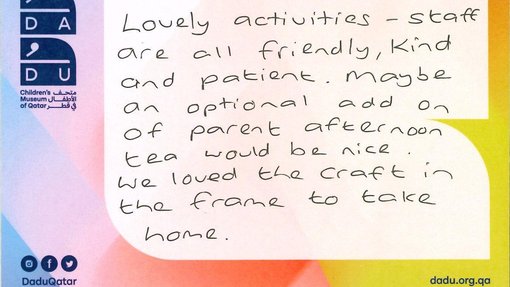 DA
DU
Children's
Museum
of Qatar
متحف
الأطفال
في قطر
Lovely activities - staff
are all friendly, kind
and patient. Maybe
an optional add on
of parent afternoon
tea would be nice.
We loved the craft in
the frame to take
home.
DaduQatar
dadu.org.qa